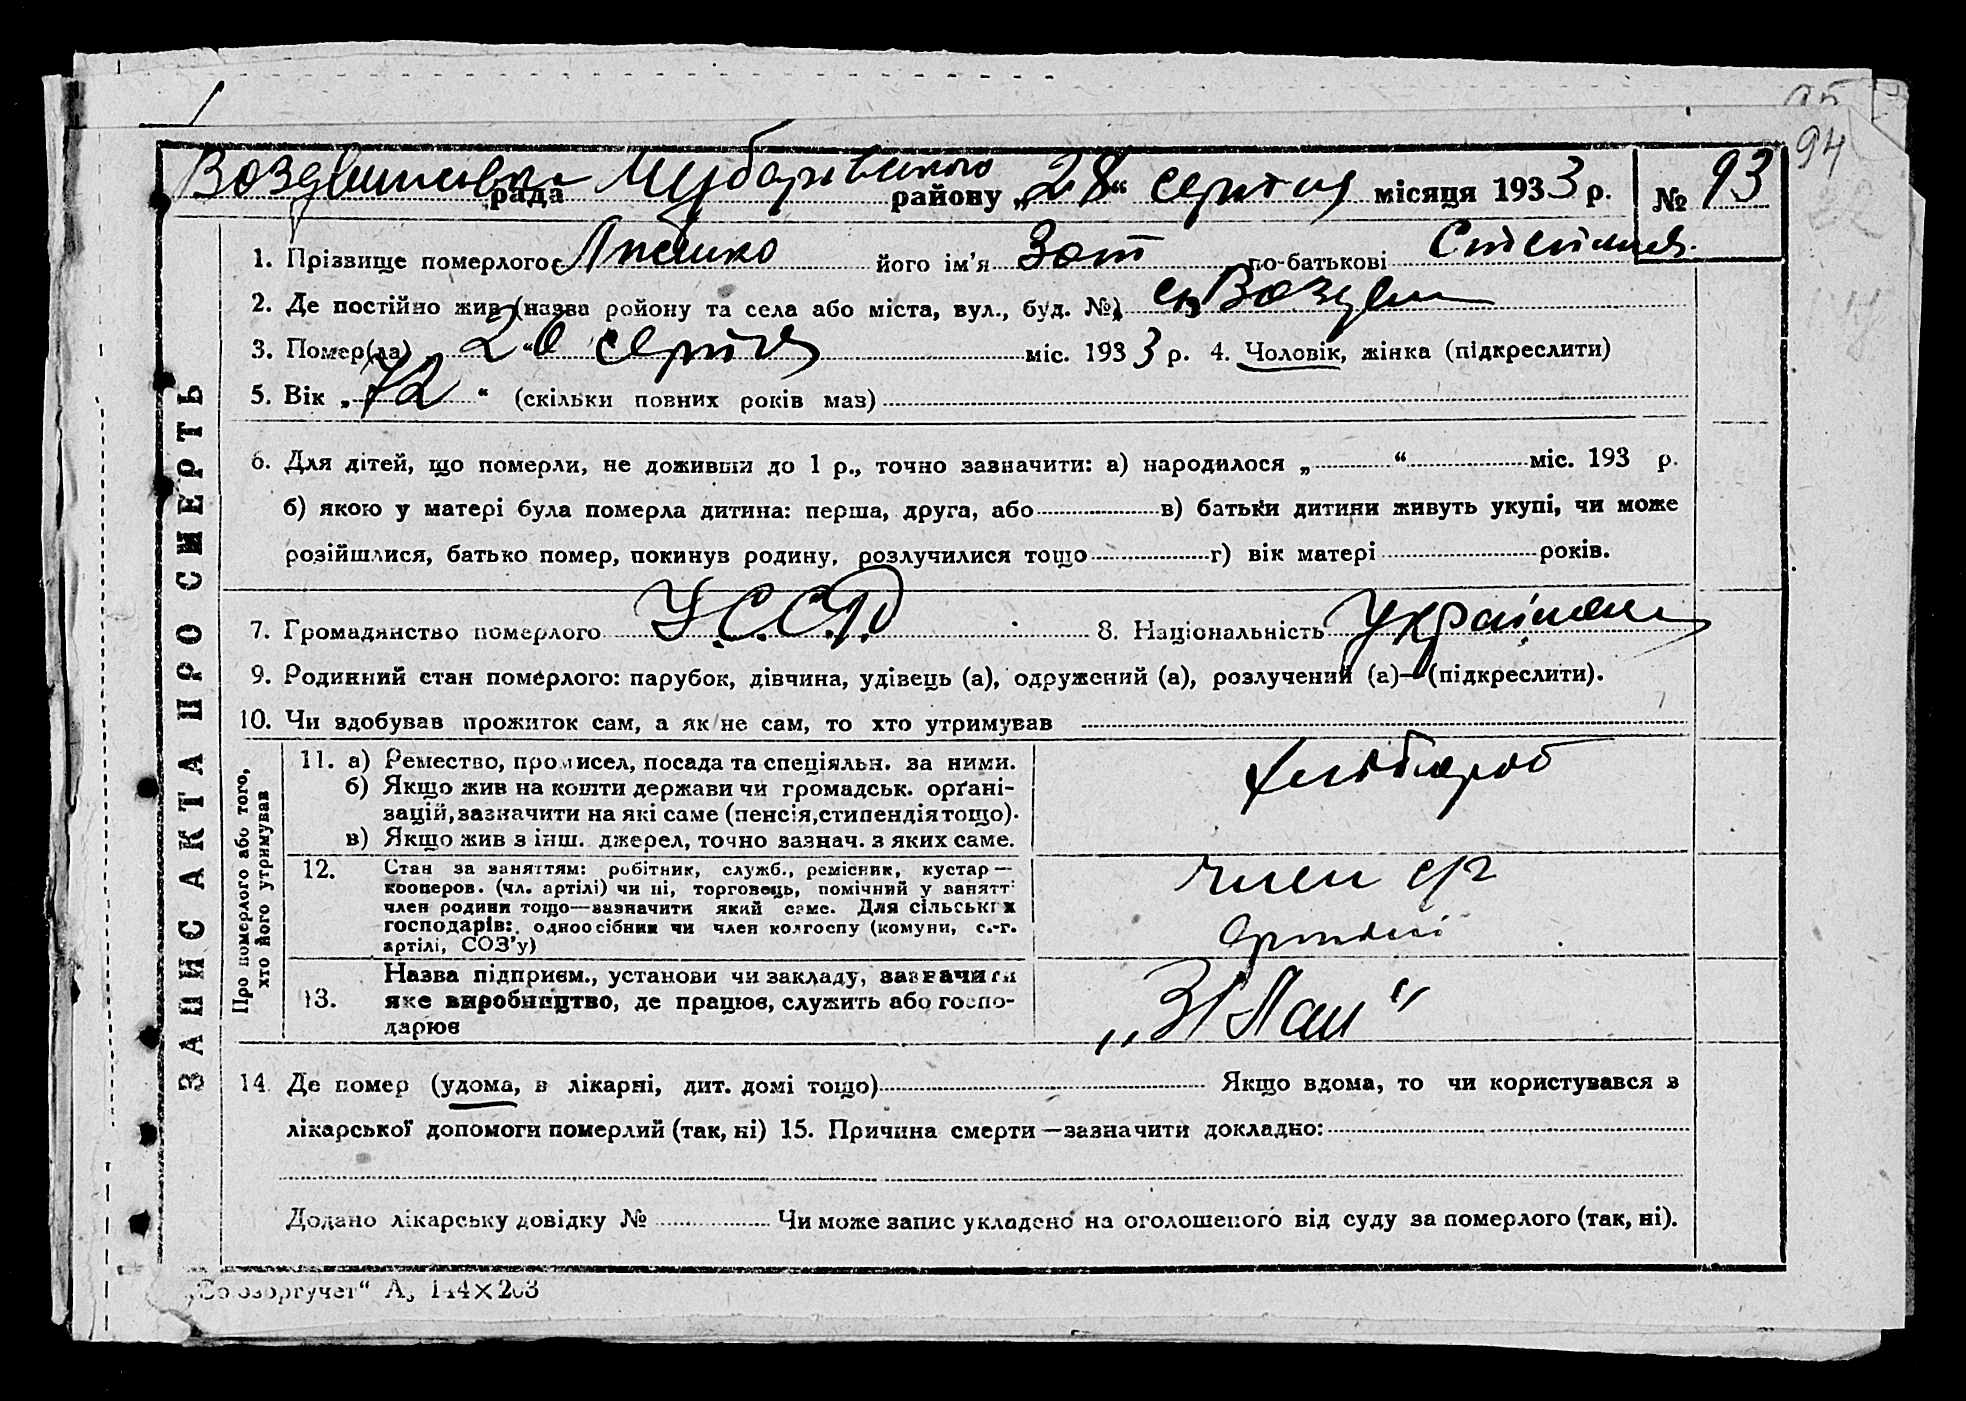 95
94
Воздвижівська рада Чубарівського району „28“ серпня місяця 1933 р. № 93
1. Прізвище померлого Япешко його ім’я Зот по-батькові
2. Де постійно жив (назва ройону та села або міста, вул., буд. №) с. Воздвиж
3. Помер(ла) „20“ серпня міс. 1933 р. 4. Чоловік, жінка (підкреслити)
5. Вік „72“ (скільки повних років мав)
6. Для дітей, що померли, не доживши до 1 р., точно зазначити: а) народилося „ “ міс. 193 р.
б) якою у матері була померла дитина: перша, друга, або в) батьки дитини живуть укупі, чи може
розійшлися, батько помер, покинув родину, розлучилися тощо г) вік матері років.
7. Громадянство померлого У.С.С.Р 8. Національність Українець
9. Родинний стан померлого: парубок, дівчина, удівець (а), одружений (а), розлучений (а)—(підкреслити).
10. Чи здобував прожиток сам, а як не сам, то хто утримував
11. а) Ремество, промисел, посада та спеціяльн. за ними.
б) Якщо жив на кошти держави чи громадськ. орґані-
зацій, зазначити на які саме (пенсія, стипендія тощо).
в) Якщо жив з інш. джерел, точно зазнач. з яких саме.
хлібороб
12. Стан за заняттям: робітник, служб., ремісник, кустар—
кооперов. (чл. артілі) чи ні, торговець, помічний у занятт:
член родини тощо—зазначити який саме. Для сільських
господарів: одноосібник чи член колгоспу (комуни, с.-г.
артілі, СОЗ’у)
член с/г
артілі
13. Назва підприєм., установи чи закладу, зазначити
яке виробництво, де працює, служить або госпо-
дарює
ЗАПИС АКТА ПРО СМЕРТЬ
Про померлого або того,
хто його утримував
14. Де помер (удома, в лікарні, дит. домі тощо) Якщо вдома, то чи користувався з
лікарської допомоги померлий (так, ні) 15. Причина смерти—зазначити докладно:
Додано лікарську довідку № Чи може запис укладено на оголошеного від суду за померлого (так, ні).
„Союзоргучет“ А₅ 144×203